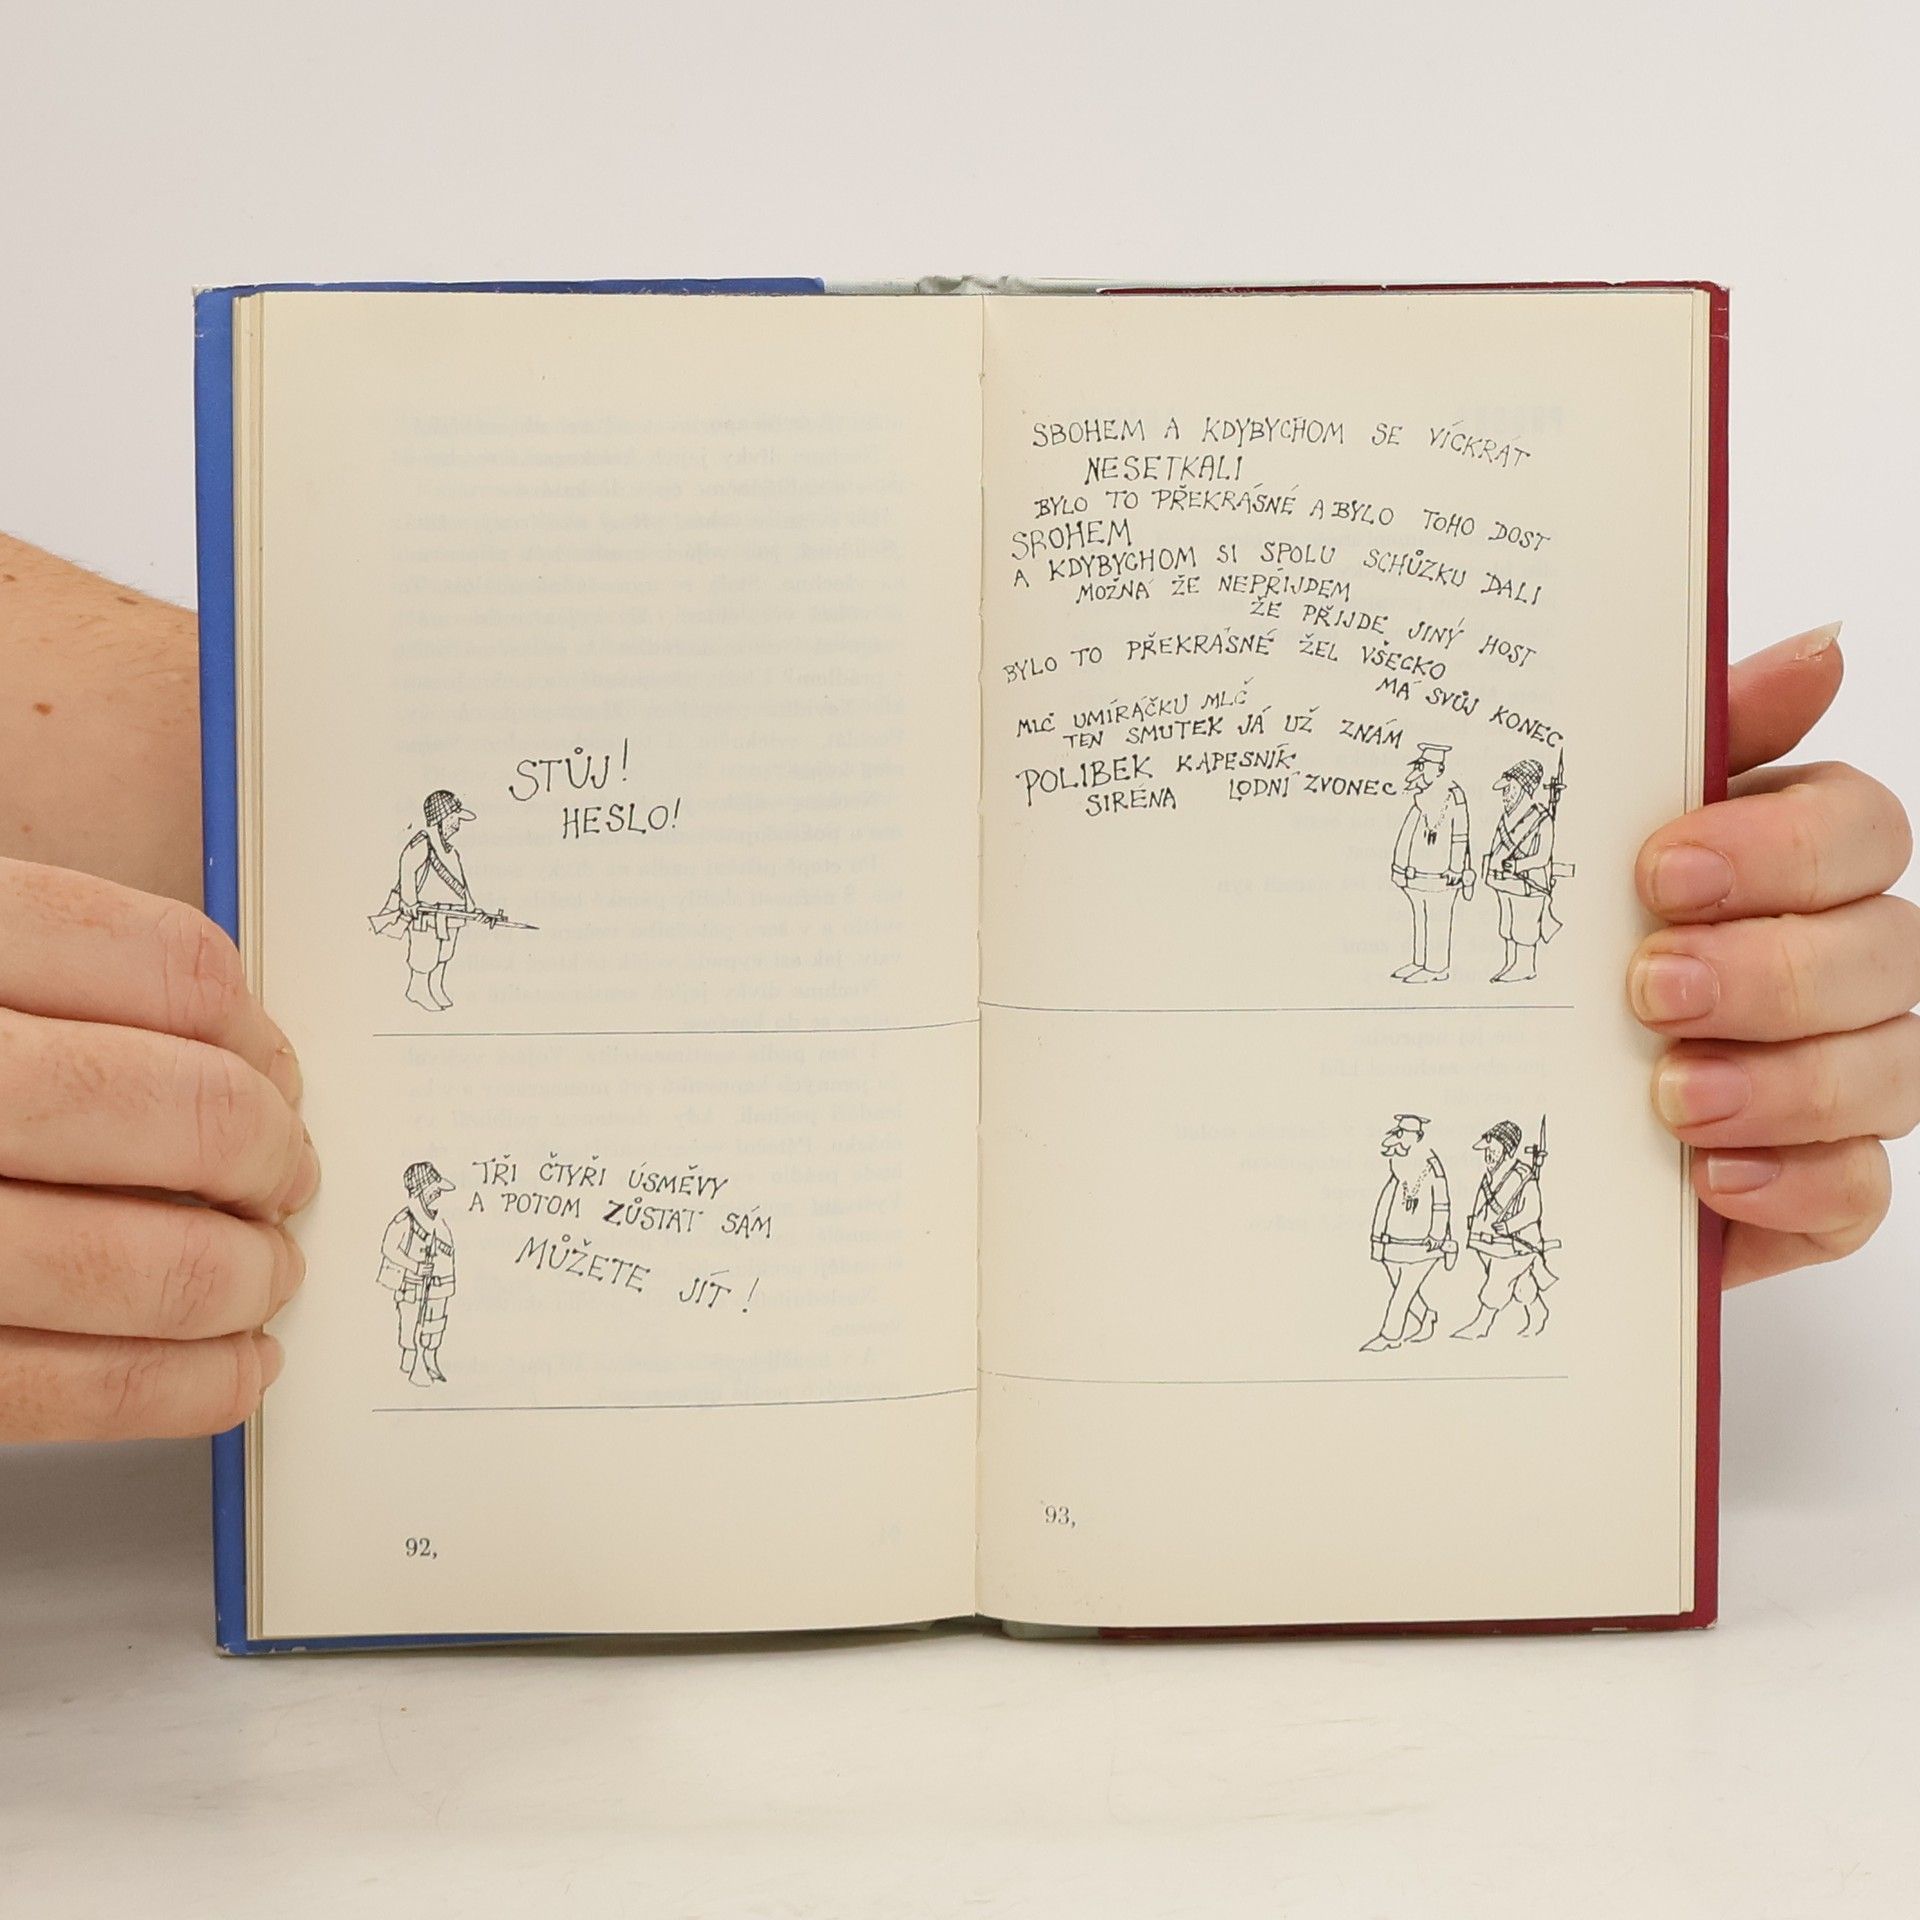 STŮJ!
HESLO!
TŘI ČTYŘI ÚSMĚVY
A POTOM ZŮSTAT SÁM
MŮŽETE JÍT!
92,
SBOHEM A KDYBYCHOM SE VÍCKRÁT
NESETKALI
BYLO TO PŘEKRÁSNÉ A BYLO TOHO DOST
SBOHEM
A KDYBYCHOM SI SPOLU SCHŮZKU DALI
MOŽNÁ ŽE NEPŘIJDEM
ŽE PŘIJDE JINÝ HOST
BYLO TO PŘEKRÁSNÉ ŽEL VŠECKO
MÁ SVŮJ KONEC
MLČ UMÍRÁČKU MLČ
TEN SMUTEK JÁ UŽ ZNÁM
POLIBEK KAPESNÍK
SIRÉNA LODNÍ ZVONEC
93,